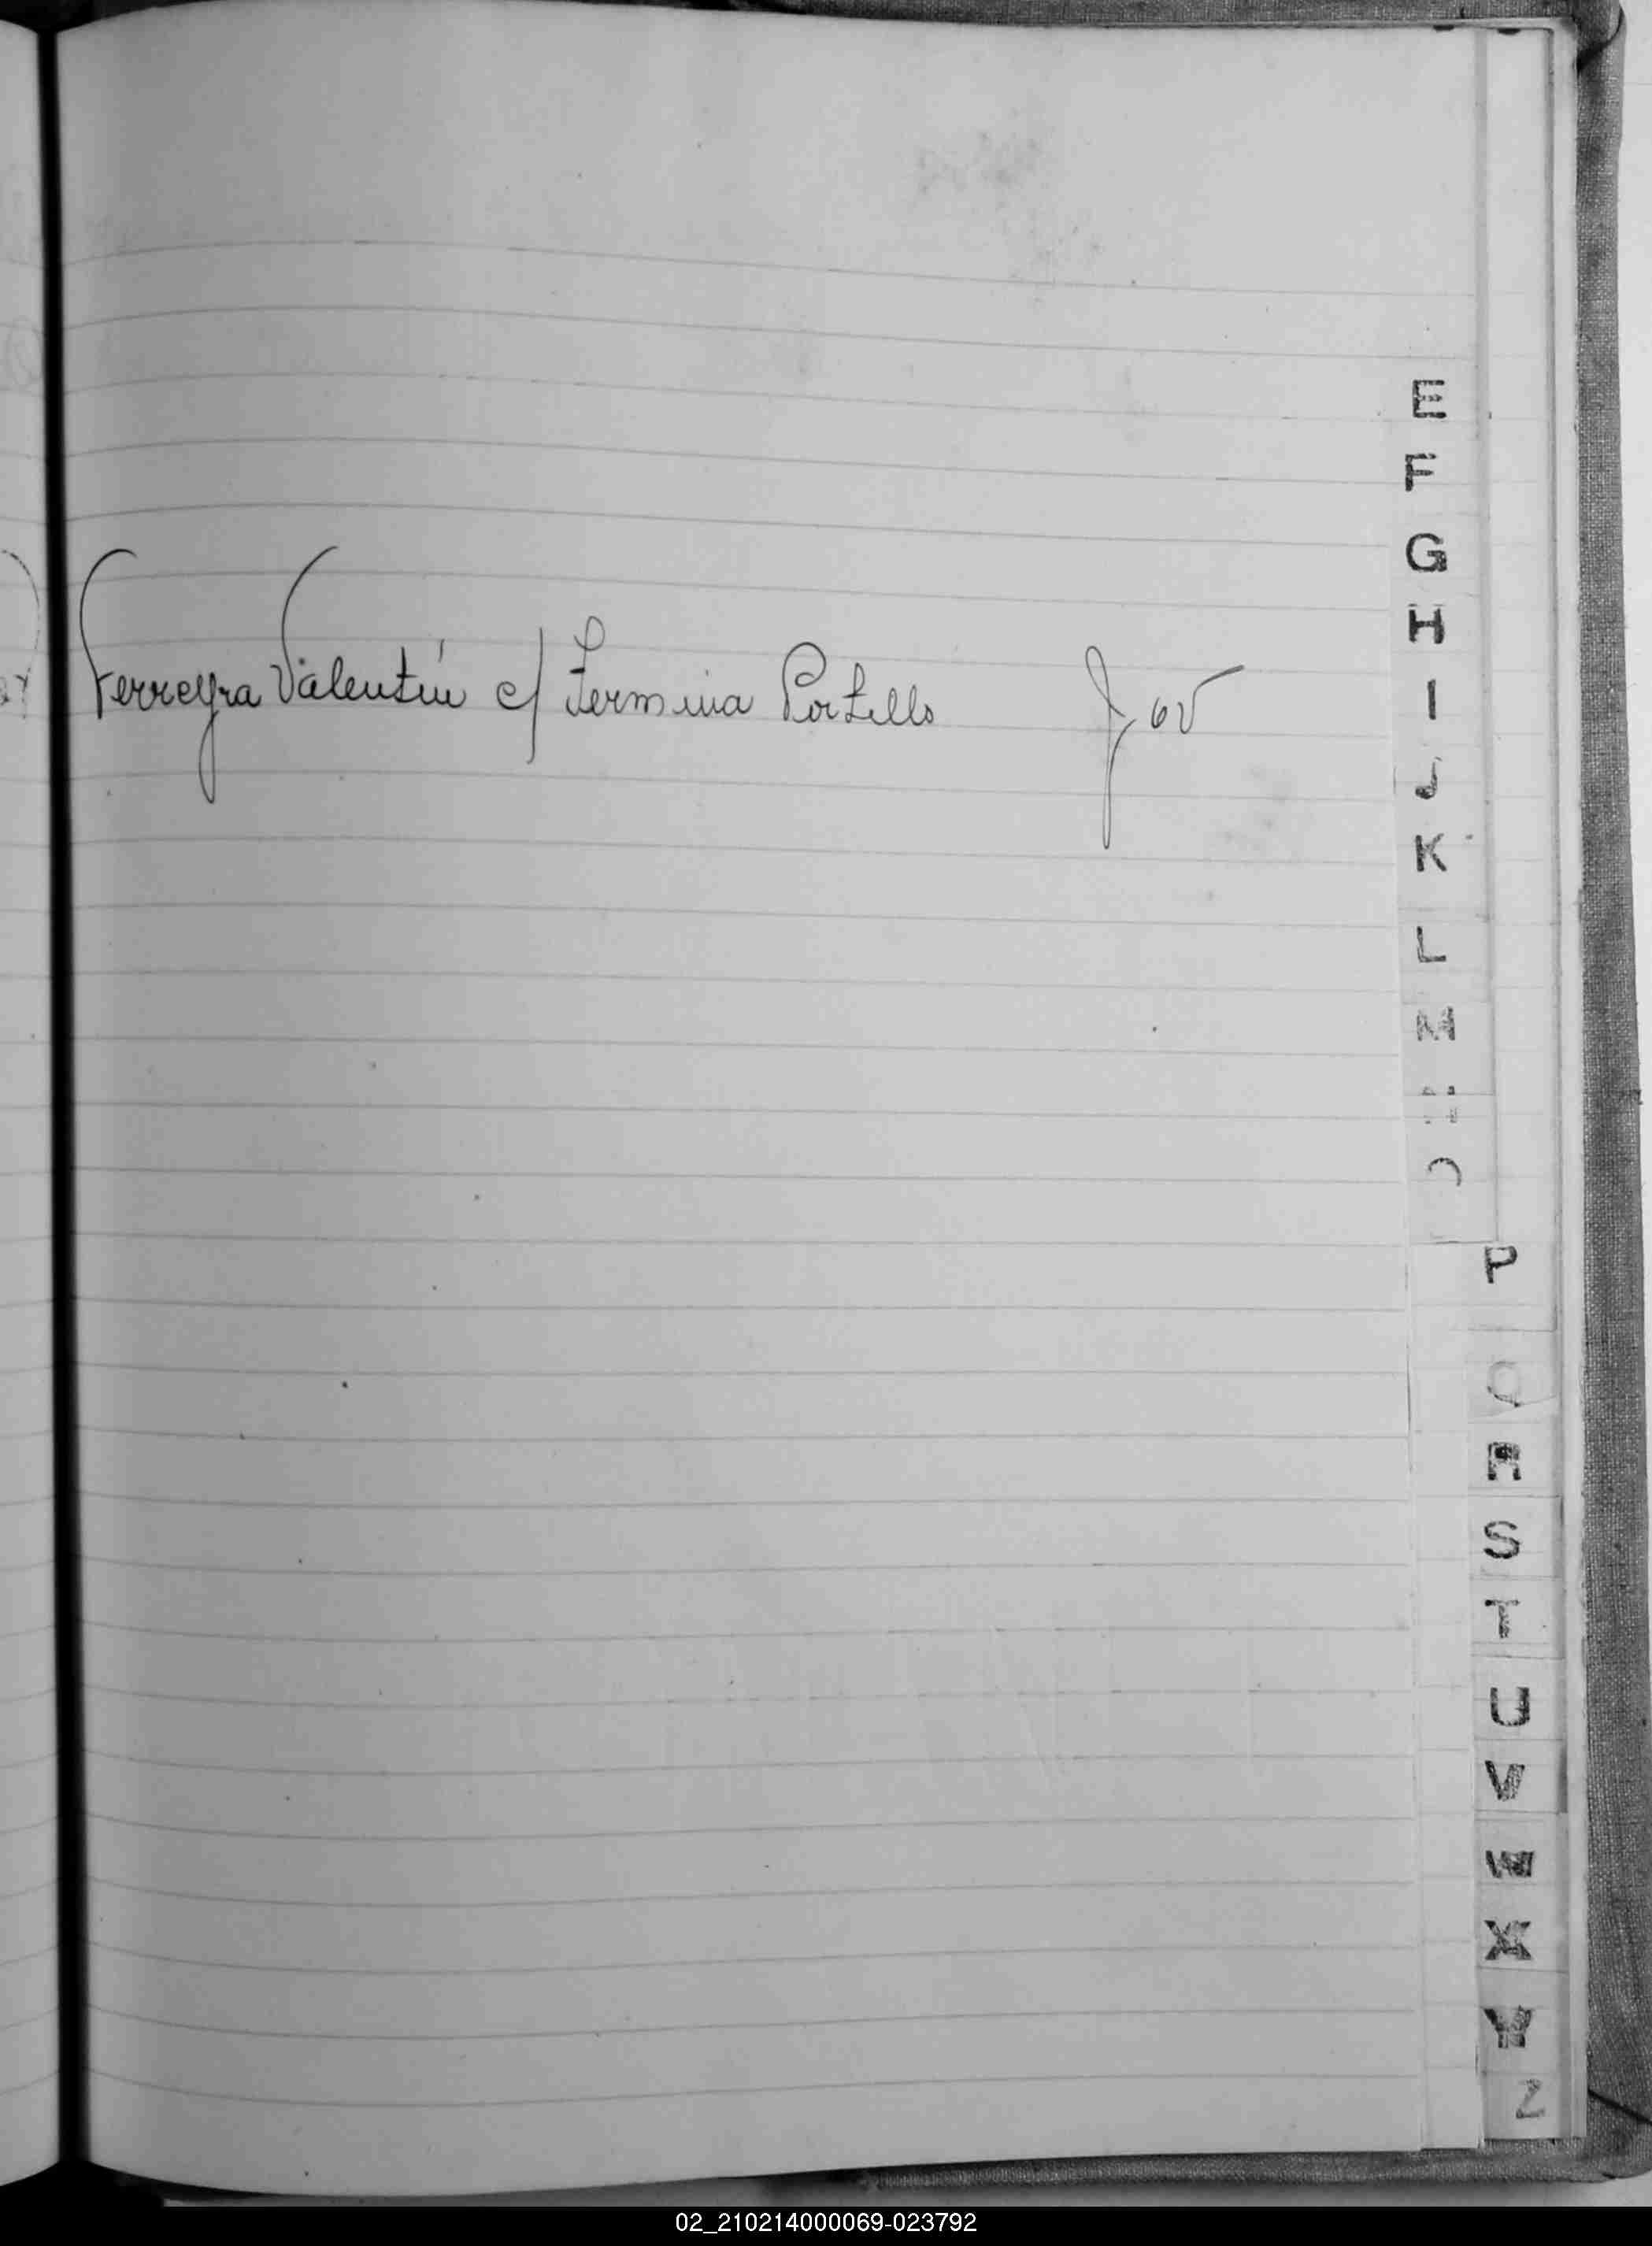 Ferreyra Valentín c/ Fermina Portillo
E
F
G
H
I
J
K
L
M
N
O
P
Q
R
S
T
U
V
W
X
Y
Z
02_210214000069-023792